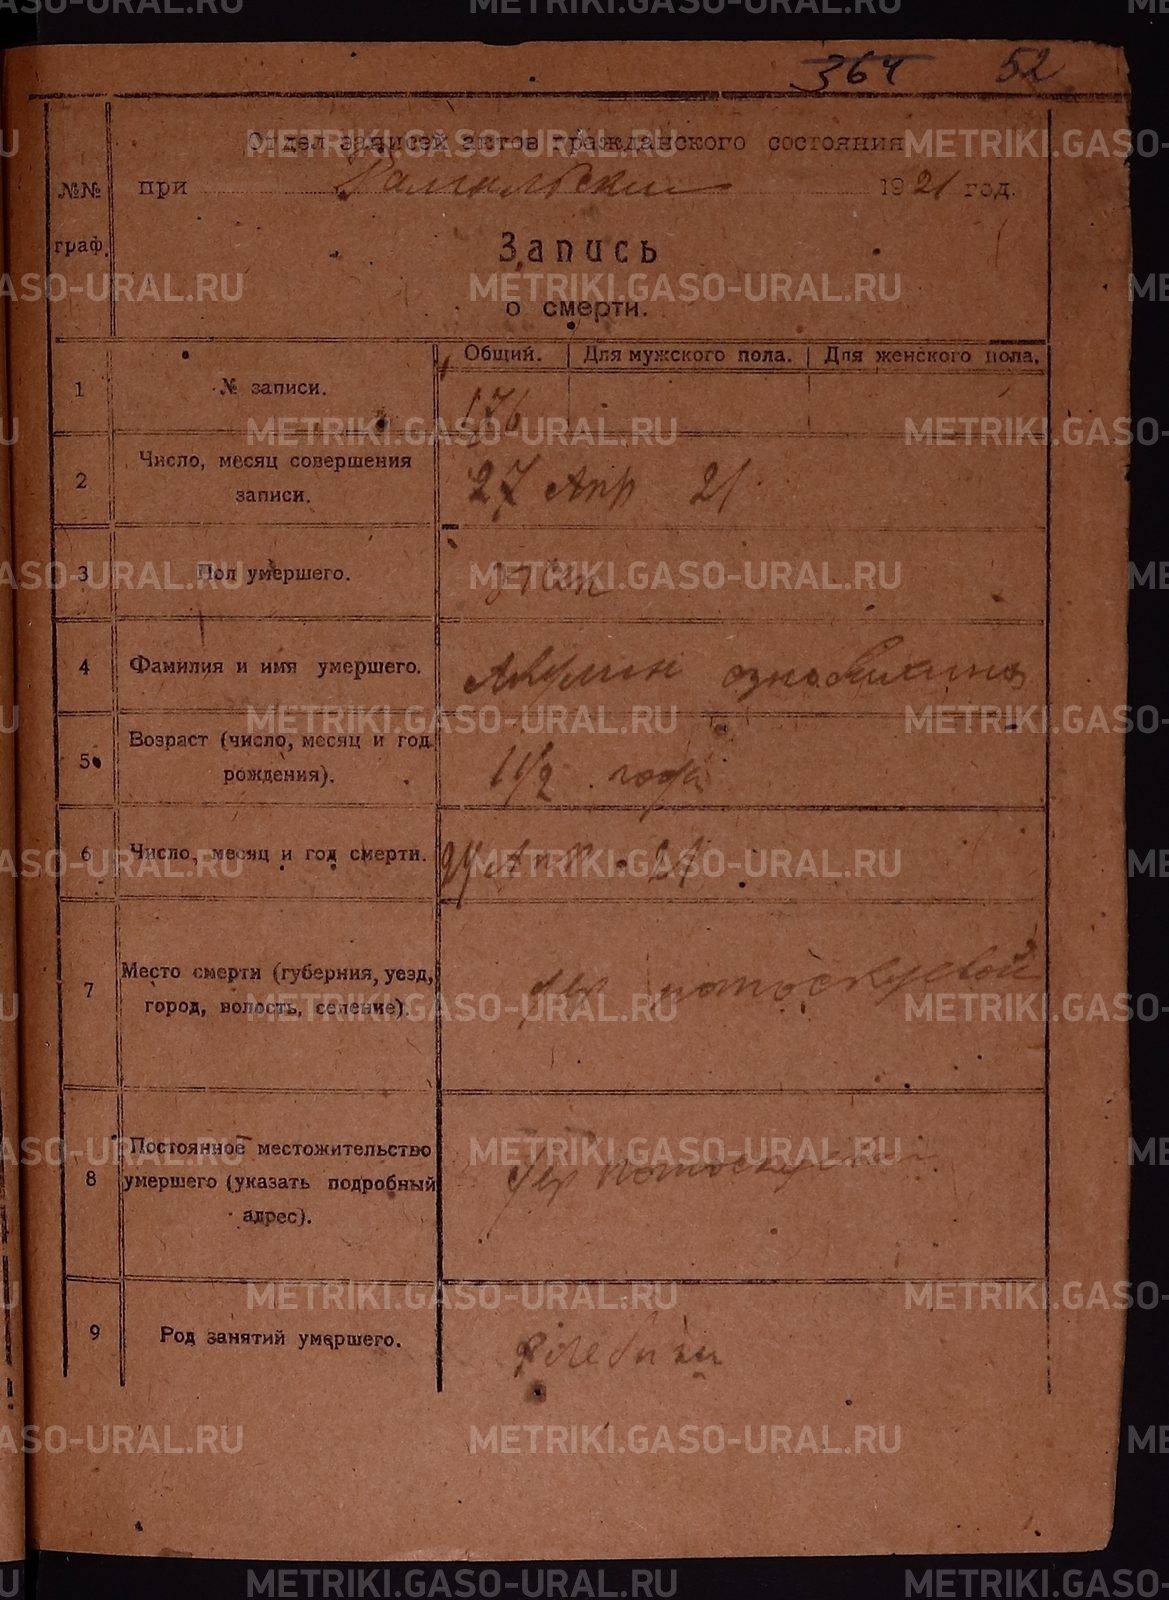 364 52
Отдел записей актов гражданского состояния
при 1921 год.
№№ граф.
Запись
о смерти.
Общий. Для мужского пола. Для женского пола.
1 № записи. 176
2 Число, месяц совершения записи. 27 Апр 21
3 Пол умершего. жен
4 Фамилия и имя умершего. Акулин
5 Возраст (число, месяц и год рождения). 1 1/2 года
6 Число, месяц и год смерти. Апр. 21
7 Место смерти (губерния, уезд, город, волость, селение). дер потоскуевой
8 Постоянное местожительство умершего (указать подробный адрес). дер потоскуевой
9 Род занятий умершего.
METRIKI.GASO-URAL.RU